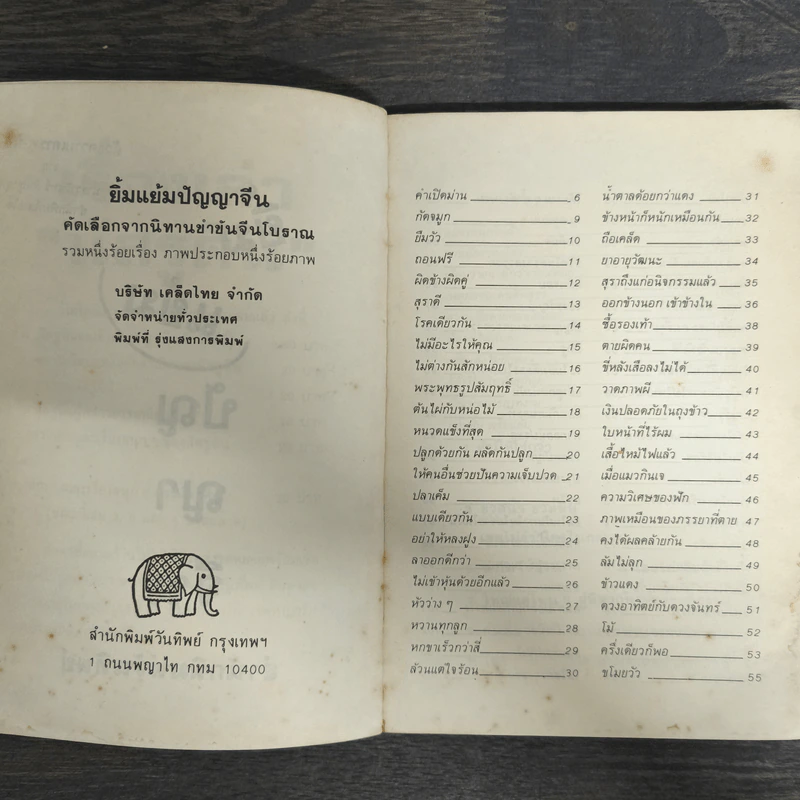 ยิ้มแย้มปัญญาจีน
คัดเลือกจากนิทานขำขันจีนโบราณ
รวมหนึ่งร้อยเรื่อง ภาพประกอบหนึ่งร้อยภาพ
บริษัท เคล็ดไทย จำกัด
จัดจำหน่ายทั่วประเทศ
พิมพ์ที่ รุ่งแสงการพิมพ์
สำนักพิมพ์วันทิพย์ กรุงเทพฯ
1 ถนนพญาไท กทม 10400
คำเปิดม่าน 6
กัดจมูก 9
ยืมวัว 10
ถอนฟรี 11
ผิดข้างผิดคู่ 12
สุราดี 13
โรคเดียวกัน 14
ไม่มีอะไรให้คุณ 15
ไม่ต่างกันสักหน่อย 16
พระพุทธรูปสัมฤทธิ์ 17
ต้นไผ่กับหน่อไม้ 18
หนวดแข็งที่สุด 19
ปลูกด้วยกัน ผลัดกันปลูก 20
ให้คนอื่นช่วยปันความเจ็บปวด 21
ปลาเค็ม 22
แบบเดียวกัน 23
อย่าให้หลงฝูง 24
ลาออกดีกว่า 25
ไม่เข้าหุ้นด้วยอีกแล้ว 26
หัวว่าง ๆ 27
หวานทุกลูก 28
หกขาเร็วกว่าสี่ 29
ล้วนแต่ใจร้อน 30
น้ำตาลด้อยกว่าแดง 31
ข้างหน้าก็หนักเหมือนกัน 32
ถือเคล็ด 33
ยาอายุวัฒนะ 34
สุราถึงแก่อนิจกรรมแล้ว 35
ออกข้างนอก เข้าข้างใน 36
ซื้อรองเท้า 38
ตายผิดคน 39
ขี่หลังเสือลงไม่ได้ 40
วาดภาพผี 41
เงินปลอดภัยในถุงข้าว 42
ใบหน้าที่ไร้ผม 43
เสื้อไหม้ไฟแล้ว 44
เมื่อแมวกินเจ 45
ความวิเศษของฟัก 46
ภาพเหมือนของภรรยาที่ตาย 47
คงได้ผลคล้ายกัน 48
ล้มไม่ลุก 49
ข้าวแดง 50
ดวงอาทิตย์กับดวงจันทร์ 51
โม้ 52
ครึ่งเดียวก็พอ 53
ขโมยวัว 55